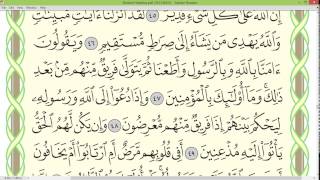 إِنَّ ٱللَّهَ عَلَىٰ كُلِّ شَىْءٍ قَدِيرٌ ٤٥ لَّقَدْ أَنزَلْنَآ ءَايَٰتٍ مُّبَيِّنَٰتٍ
وَٱللَّهُ يَهْدِى مَن يَشَآءُ إِلَىٰ صِرَٰطٍ مُّسْتَقِيمٍ ٤٦ وَيَقُولُونَ
ءَامَنَّا بِٱللَّهِ وَبِٱلرَّسُولِ وَأَطَعْنَا ثُمَّ يَتَوَلَّىٰ فَرِيقٌ مِّنْهُم مِّنۢ بَعْدِ
ذَٰلِكَ وَمَآ أُو۟لَٰٓئِكَ بِٱلْمُؤْمِنِينَ ٤٧ وَإِذَا دُعُوٓا۟ إِلَى ٱللَّهِ وَرَسُولِهِۦ
لِيَحْكُمَ بَيْنَهُمْ إِذَا فَرِيقٌ مِّنْهُم مُّعْرِضُونَ ٤٨ وَإِن يَكُن لَّهُمُ ٱلْحَقُّ
يَأْتُوٓا۟ إِلَيْهِ مُذْعِنِينَ ٤٩ أَفِى قُلُوبِهِم مَّرَضٌ أَمِ ٱرْتَابُوٓا۟ أَمْ يَخَافُونَ